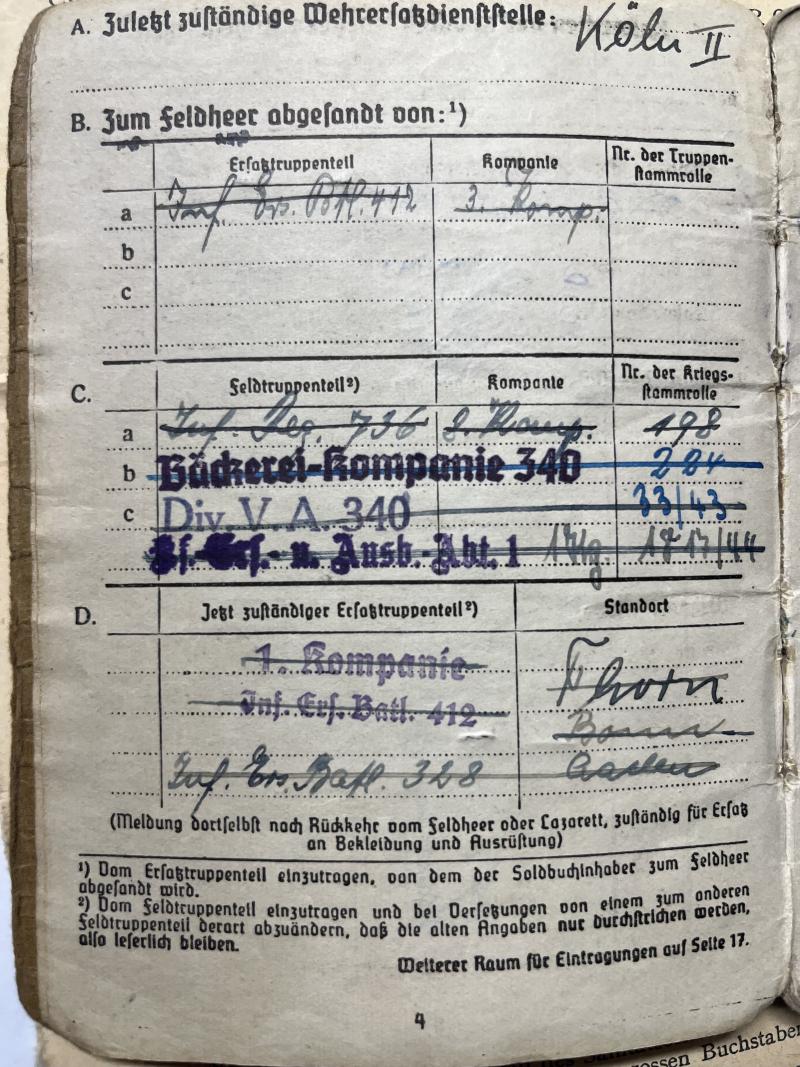 A. Zuletzt zuständige Wehrersatzdienststelle: Köln II
B. Zum Feldheer abgesandt von:¹)
Ersatztruppenteil Kompanie Nr. der Truppen-
stammrolle
a Inf. Ers. Btl. 412 3. Komp.
b
c
C. Feldtruppenteil²) Kompanie Nr. der Kriegs-
stammrolle
a Inf. Reg. 736 8. Komp. 198
b Bäckerei-Kompanie 340 224
c Div. V. A. 340 33/43
Ers.- u. Ausb.-Abt. 1 1817/44
D. Jetzt zuständiger Ersatztruppenteil²) Standort
1. Kompanie
Thorn
Inf. Ers. Batl. 412
Bonn
Inf. Ers. Batl. 328 Aachen
(Meldung dortselbst nach Rückkehr vom Feldheer oder Lazarett, zuständig für Ersatz
an Bekleidung und Ausrüstung)
¹) Vom Ersatztruppenteil einzutragen, von dem der Soldbuchinhaber zum Feldheer
abgesandt wird.
²) Vom Feldtruppenteil einzutragen und bei Versetzungen von einem zum anderen
Feldtruppenteil derart abzuändern, daß die alten Angaben nur durchstrichen werden,
also leserlich bleiben.
Weiterer Raum für Eintragungen auf Seite 17.
4
ossen Buchstaben